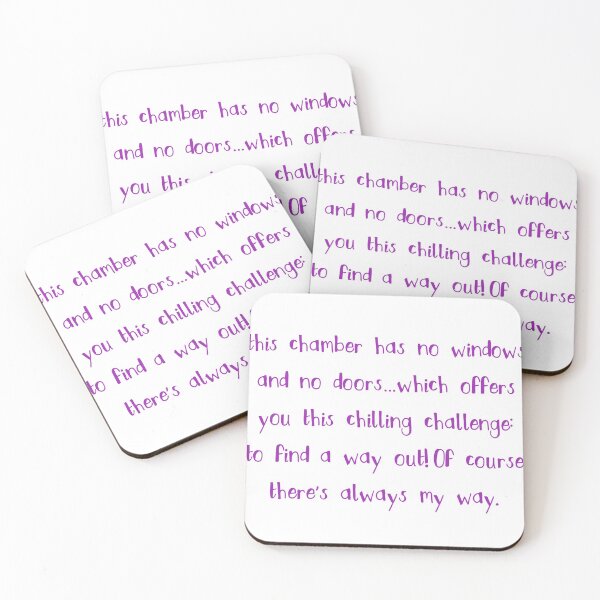 this chamber has no windows
and no doors...which offers
you this
Of
this chamber has no windows
and no doors...which offers
you this chilling challenge:
to find a way out! Of course
way.
this chamber has no windows
and no doors...which offers
you this chilling challenge:
to find a way out!
there's always
this chamber has no windows
and no doors...which offers
you this chilling challenge:
to find a way out! Of course
there's always my way.